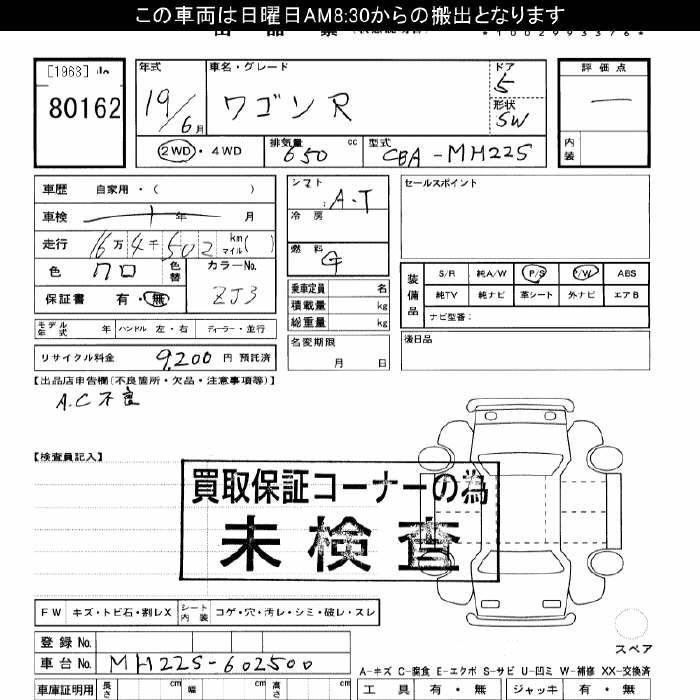 この車両は日曜日AM8:30からの搬出となります
*1002993376*
[1963]
80162
年式
19/6月
車名・グレード
ワゴンR
ドア
5
形状
SW
評価点
―
内装
2WD・4WD
排気量 650 cc
型式 CBA-MH22S
車歴 自家用・( )
車検 年 月
走行 16万4千502 km マイル( )
色 クロ 色替
カラーNo. ZJ3
保証書 有・無
シフト A・T
冷房
燃料 G
乗車定員 名
積載量 kg
総重量 kg
名変期限 月 日
セールスポイント
装備品
S/R 純A/W P/S P/W ABS
純TV 純ナビ 革シート 外ナビ エアB
ナビ型番:
後日品
モデル年式 年 ハンドル 左・右 ディーラー・並行
リサイクル料金 9,200 円 預託済
【出品店申告欄(不良箇所・欠品・注意事項等)】
A.C不良
【検査員記入】
買取保証コーナーの為
未検査
FW キズ・トビ石・割レX シート内装 コゲ・穴・汚レ・シミ・破レ・スレ
スペア
登録No.
車台No. MH22S-602500
A-キズ C-腐食 E-エクボ S-サビ U-凹ミ W-補修 XX-交換済
車庫証明用 長さ cm 幅 cm 高さ cm
工具 有・無 ジャッキ 有・無